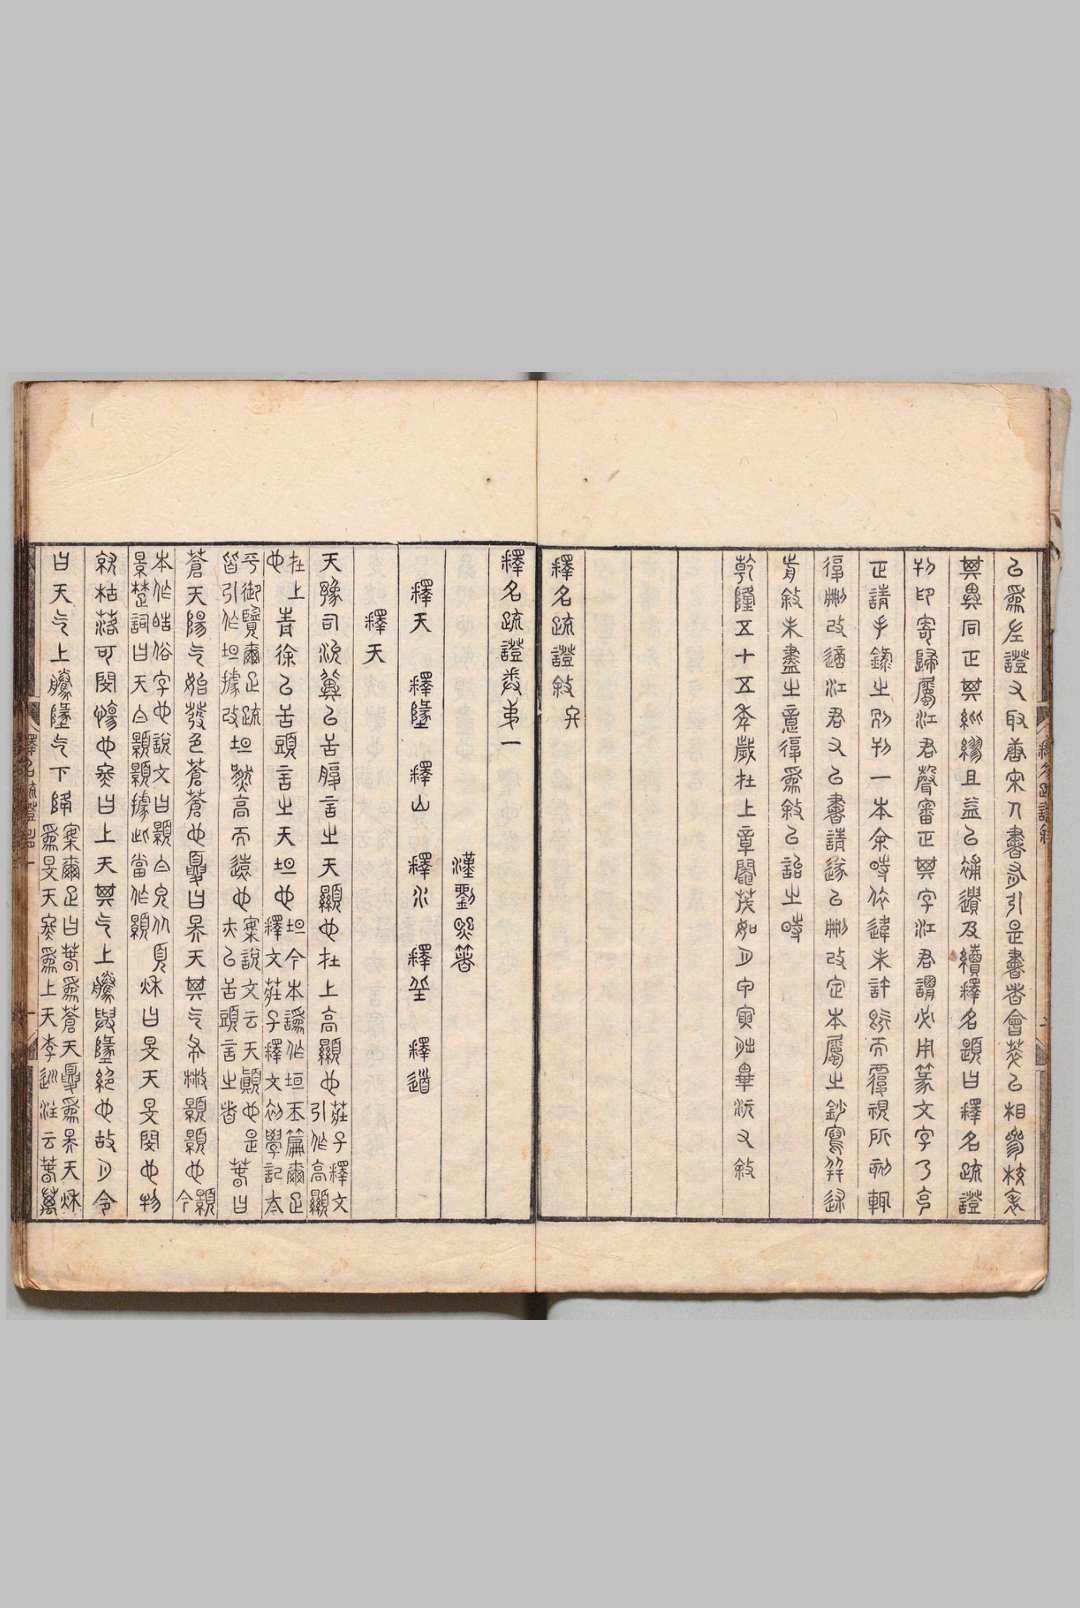 㠯爲左證又取唐宋人書有引是書者會萃㠯相參校表
其異同正其紕繆且益㠯補遺及續釋名題曰釋名疏證
刊印寄歸屬江君聲審正其字江君謂必用篆文字乃克
正請手錄之別刊一本余時依違未許緃而覆視所刻輒
復刪改適江君又㠯書請遂㠯刪改定本屬之鈔寫幷述
前敘未盡之意復爲敘㠯詒之時
乾隆五十五年歲在上章閹茂如月甲寅朏畢沅又敘
釋名疏證敘
釋名疏證卷弟一
漢劉熙著
釋天 釋墬 釋山 釋水 釋丘 釋道
釋天
天豫司兗冀㠯舌腹言之天顯也在上高顯也莊子釋文引作高顯
在上也青徐㠯舌頭言之天坦也坦今本譌作垣玉篇爾疋釋文莊子釋文初學記太
平御覽爾疋疏皆引作坦據改坦然高而遠也案說文云天顚也是亦㠯舌頭言之者春曰
蒼天陽气始發色蒼蒼也夏曰昦天其气布散顥顥也顥今
本作皓俗字也說文曰顥白皃从頁景楚詞曰天白顥顥據此當作顥秋曰旻天旻閔也物
就枯落可閔傷也冬曰上天其气上騰與墬絕也故月令
曰天气上騰墬气下降案爾疋曰春爲蒼天夏爲昦天秋爲旻天冬爲上天李巡注云春萬